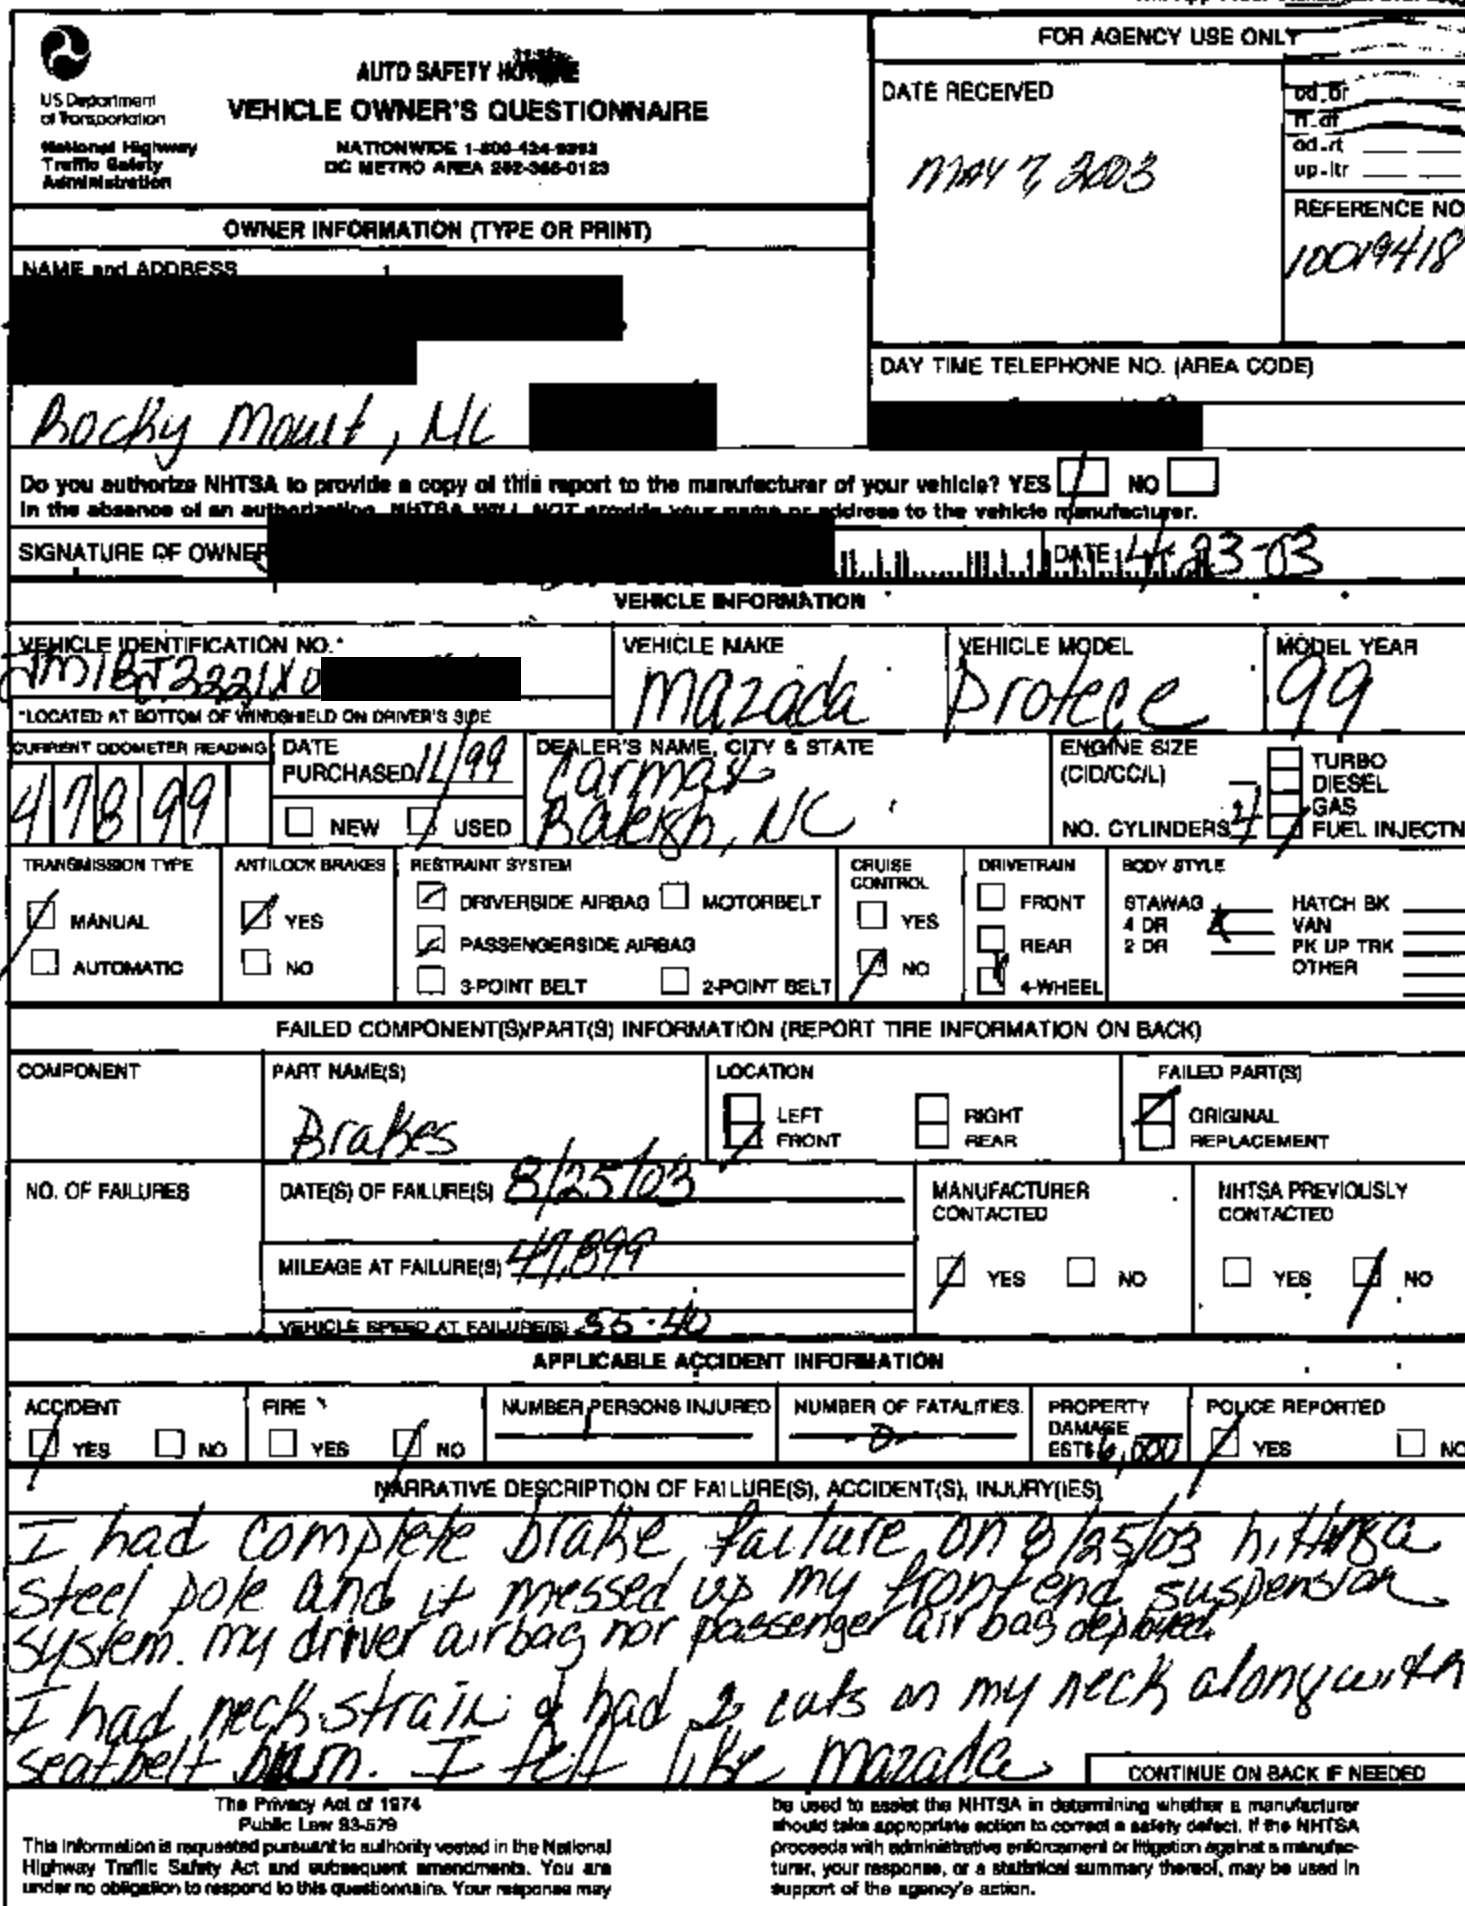 AUTO SAFETY HOTLINE
VEHICLE OWNER'S QUESTIONNAIRE
NATIONWIDE 1-800-424-9393
DC METRO AREA 202-366-0123
US Department
of Transportation
National Highway
Traffic Safety
Administration
FOR AGENCY USE ONLY
DATE RECEIVED
MAY 7, 2003
od_or
rt_dt
od_rt
up_ltr
REFERENCE NO
10019418
OWNER INFORMATION (TYPE OR PRINT)
NAME and ADDRESS
Rocky Mount, NC
DAY TIME TELEPHONE NO. (AREA CODE)
Do you authorize NHTSA to provide a copy of this report to the manufacturer of your vehicle? YES NO
In the absence of an authorization, NHTSA WILL NOT provide your name or address to the vehicle manufacturer.
SIGNATURE OF OWNER
DATE 4-23-03
VEHICLE INFORMATION
VEHICLE IDENTIFICATION NO.*
JM1BJ2221X0
*LOCATED AT BOTTOM OF WINDSHIELD ON DRIVER'S SIDE
VEHICLE MAKE
Mazada
VEHICLE MODEL
Protege
MODEL YEAR
99
CURRENT ODOMETER READING
47899
DATE
PURCHASED 11/99
NEW USED
DEALER'S NAME, CITY & STATE
Carmax
Raleigh, NC
ENGINE SIZE
(CID/CC/L)
NO. CYLINDERS 4
TURBO
DIESEL
GAS
FUEL INJECTN
TRANSMISSION TYPE
MANUAL
AUTOMATIC
ANTILOCK BRAKES
YES
NO
RESTRAINT SYSTEM
DRIVERSIDE AIRBAG MOTORBELT
PASSENGERSIDE AIRBAG
3-POINT BELT 2-POINT BELT
CRUISE
CONTROL
YES
NO
DRIVETRAIN
FRONT
REAR
4-WHEEL
BODY STYLE
STAWAG HATCH BK
4 DR X VAN
2 DR PK UP TRK
OTHER
FAILED COMPONENT(S)/PART(S) INFORMATION (REPORT TIRE INFORMATION ON BACK)
COMPONENT
PART NAME(S)
Brakes
LOCATION
LEFT RIGHT
FRONT REAR
FAILED PART(S)
ORIGINAL
REPLACEMENT
NO. OF FAILURES
DATE(S) OF FAILURE(S) 3/25/03
MILEAGE AT FAILURE(S) 47,899
VEHICLE SPEED AT FAILURE(S) 35-40
MANUFACTURER
CONTACTED
YES NO
NHTSA PREVIOUSLY
CONTACTED
YES NO
APPLICABLE ACCIDENT INFORMATION
ACCIDENT
YES NO
FIRE
YES NO
NUMBER PERSONS INJURED
1
NUMBER OF FATALITIES
-0-
PROPERTY
DAMAGE
EST$ 6,000
POLICE REPORTED
YES NO
NARRATIVE DESCRIPTION OF FAILURE(S), ACCIDENT(S), INJURY(IES)
I had complete brake failure on 3/25/03 hitting a
steel pole and it messed up my front end suspension
system. My driver airbag nor passenger air bag deployed.
I had neck strain & had 2 cuts on my neck along with
seatbelt burn. I felt like Mazada
CONTINUE ON BACK IF NEEDED
The Privacy Act of 1974
Public Law 93-579
This information is requested pursuant to authority vested in the National
Highway Traffic Safety Act and subsequent amendments. You are
under no obligation to respond to this questionnaire. Your response may
be used to assist the NHTSA in determining whether a manufacturer
should take appropriate action to correct a safety defect. If the NHTSA
proceeds with administrative enforcement or litigation against a manufac-
turer, your response, or a statistical summary thereof, may be used in
support of the agency's action.